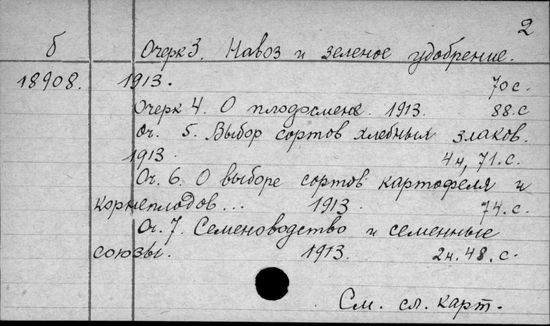 2
б Очерк 3. Навоз и зеленое удобрение.
18908. 1913. 70 с.
Очерк 4. О плодосмене. 1913. 88. с
Оч. 5. Выбор сортов хлебных злаков.
1913. 4н, 71. с.
Оч. 6. О выборе сортов картофеля и
корнеплодов... 1913. 74. с.
Оч. 7. Семеноводство и семенные
союзы. 1913. 2н. 48. с.
См. сл. карт.